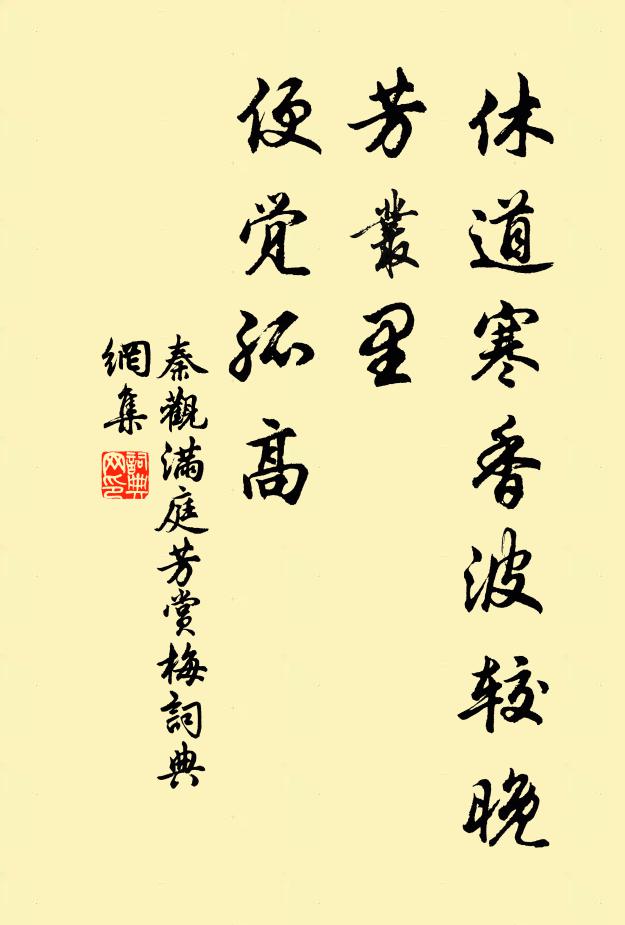 休道寒香波较晚
芳叢里
便觉孤高
秦觀满庭芳赏梅詞典
網集
詞典网印